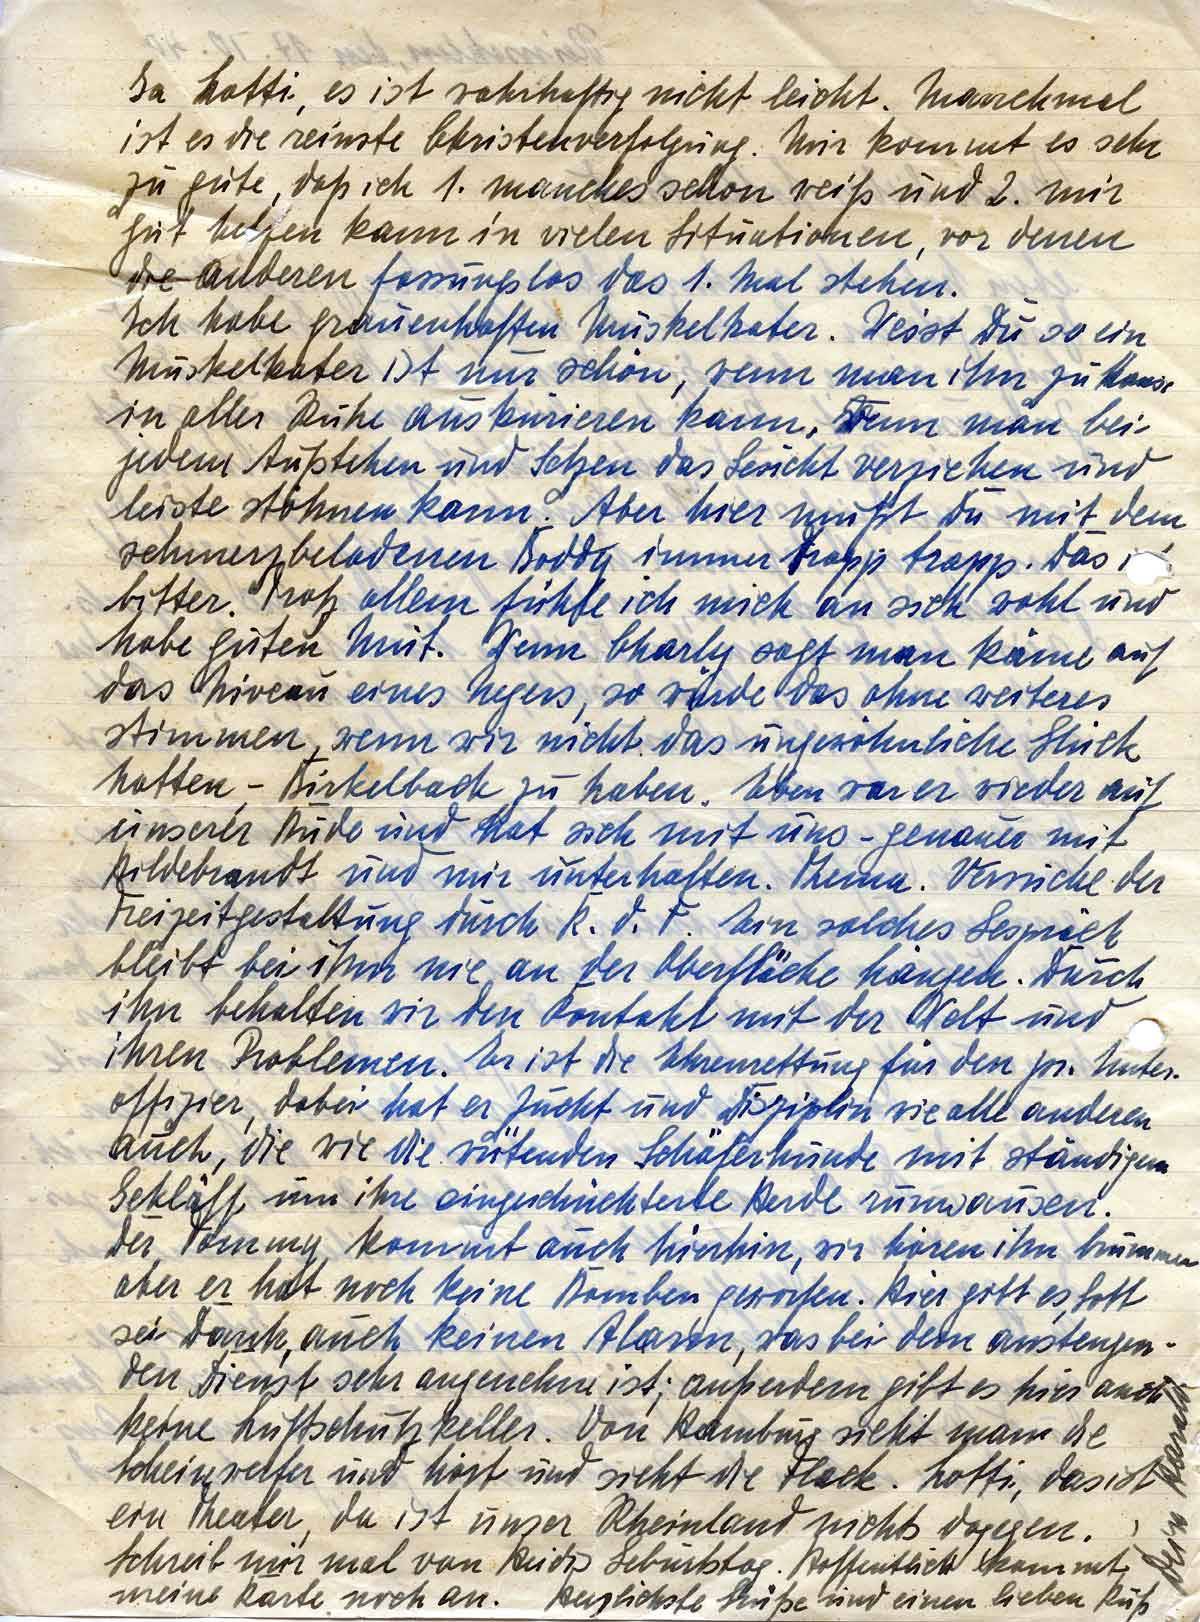 Ja Lotti, es ist wahrhaftig nicht leicht. Manchmal
ist es die reinste Christenverfolgung. Mir kommt es sehr
zu gute, daß ich 1. manches schon weiß und 2. mir
gut helfen kann in vielen Situationen, vor denen
die anderen fassungslos das 1. Mal stehen.
Ich habe grauenhaften Muskelkater. Weißt Du so ein
Muskelkater ist nur schön, wenn man ihn zu Hause
in aller Ruhe auskurieren kann, wenn man bei
jedem Aufstehen und Setzen das Gesicht verziehen und
leiste stöhnen kann. Aber hier mußt Du mit dem
schmerzbeladenen Boddy immer trapp trapp. Das
bitter. Trotz allem fühle ich mich an sich wohl und
habe guten Mut. Wenn Charly sagt man käme auf
das Niveau eines Negers, so würde das ohne weiteres
stimmen, wenn wir nicht das ungewöhnliche Glück
hatten, - Birkelbach zu haben. Eben war er wieder auf
unserer Bude und hat sich mit uns - genauer mit
Hildebrandt und mir unterhalten. Thema. Versuche der
Freizeitgestaltung durch K. d. F. Ein solches Gespräch
bleibt bei ihm nie an der Oberfläche hängen. Durch
ihn behalten wir den Kontakt mit der Welt und
ihren Problemen. Er ist die Ehrenrettung für den pr. Unter-
offizier, dabei hat er Zucht und Disziplin wie alle anderen
auch, die wie die wütenden Schäferhunde mit ständigem
Gekläff um ihre eingeschüchterte Herde rumsausen.
Der Tommy kommt auch hierhin, wir hören ihn brummen
aber er hat noch keine Bomben geworfen. Hier gibt es, Gott
sei Dank, auch keinen Alarm, was bei dem anstengen-
den Dienst sehr angenehm ist; außerdem gibt es hier auch
keine Luftschutzkeller. Von Hamburg sieht man die
Scheinwerfer und hört und sieht die Flack. Lotti, das ist
ein Theater, da ist unser Rheinland nichts dagegen.
Schreib mir mal von Heidis Geburtstag. Hoffentlich kommt
meine Karte noch an. Herzlichste Grüße und einen lieben Kuß
Dein